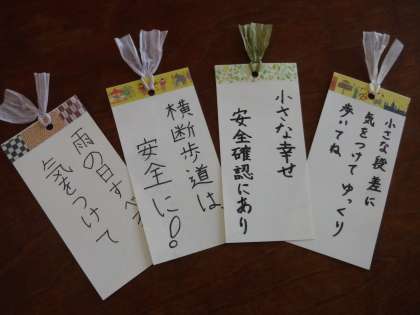 小さな段差に
気をつけてゆっくり
歩いてね
小さな幸せ
安全確認にあり
横断歩道は
安全に!
雨の日すべ
気をつけて